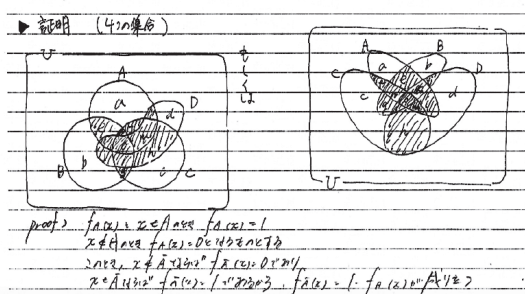 ▶ 証明 (4つの集合)
U
A
a
D
d
B
b
i
C
もしくは
A
B
C
D
a
b
c
d
U
proof) f_A(x) : x∈Aのとき f_A(x)=1
x∉Aのとき f_A(x)=0となるものとする
このとき, x∉Āならば f_Ā(x)=0であり
x∈Āならば f_Ā(x)=1であるから, f_Ā(x)=1-f_A(x)が成り立つ